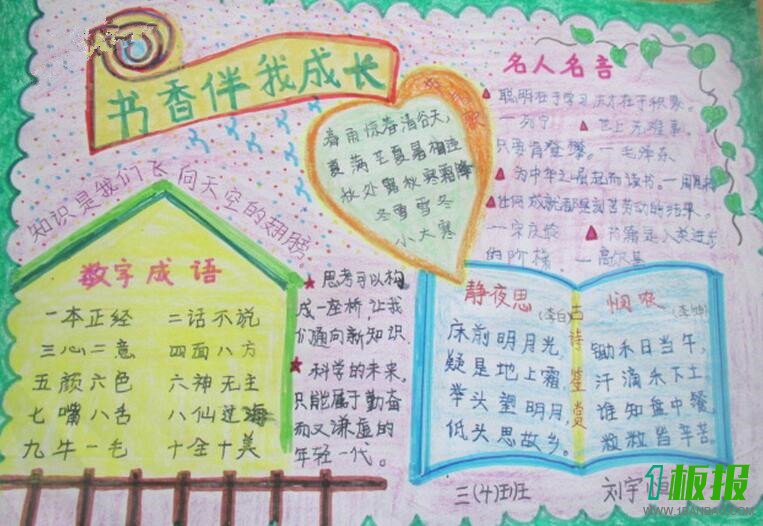 书香伴我成长
知识是我们飞向天空的翅膀
春雨惊春清谷天,
夏满芒夏暑相连
秋处露秋寒霜降
冬雪雪冬
小大寒
名人名言
聪明在于学习,天才在于积累。
—列宁 世上无难事,
只要肯登攀。 —毛泽东
为中华之崛起而读书。—周恩来
任何成就都是刻苦劳动的结果。
—宋庆龄 书籍是人类进步
的阶梯。 —高尔基
数字成语
一本正经 二话不说
三心二意 四面八方
五颜六色 六神无主
七嘴八舌 八仙过海
九牛一毛 十全十美
思考可以构
成一座桥,让我
们通向新知识.
科学的未来,
只能属于勤奋
而又谦虚的
年轻一代。
古诗鉴赏
静夜思
(李白)
床前明月光,
疑是地上霜
举头望明月,
低头思故乡。
悯农
(李绅)
锄禾日当午,
汗滴禾下土,
谁知盘中餐,
粒粒皆辛苦。
三(4)班
刘宇恒
1板报
WWW.1BANBAO.COM